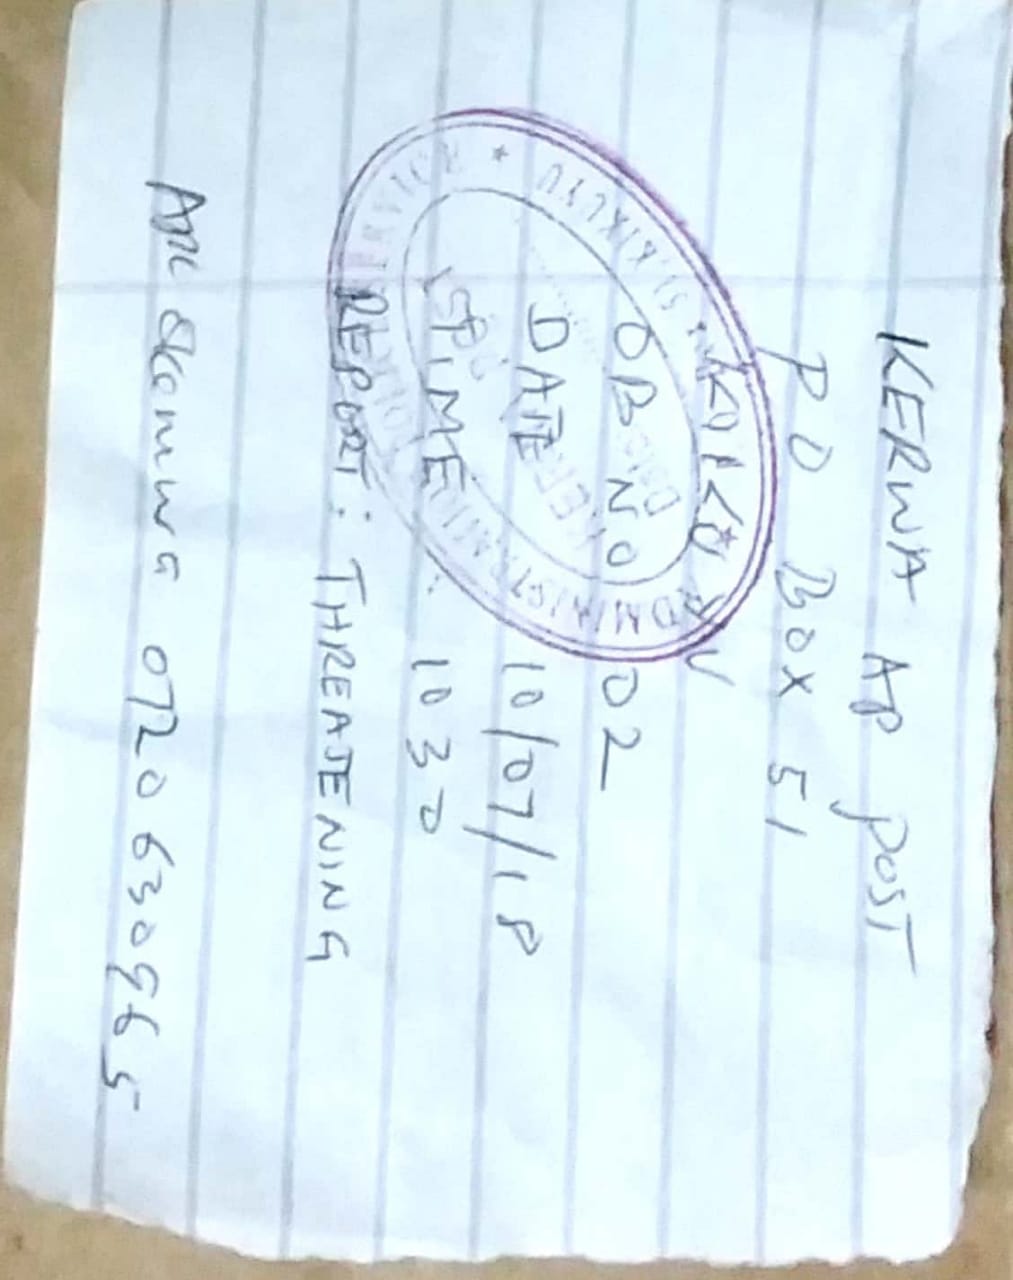 KERWA AP POST
P O BOX 51
KIKUYU
OB NO 02
DATE 10/07/18
TIME 1030
REPORT: THREATENING
APC 0720630565
ADMINISTRATION POLICE SERVICE * KIKUYU *